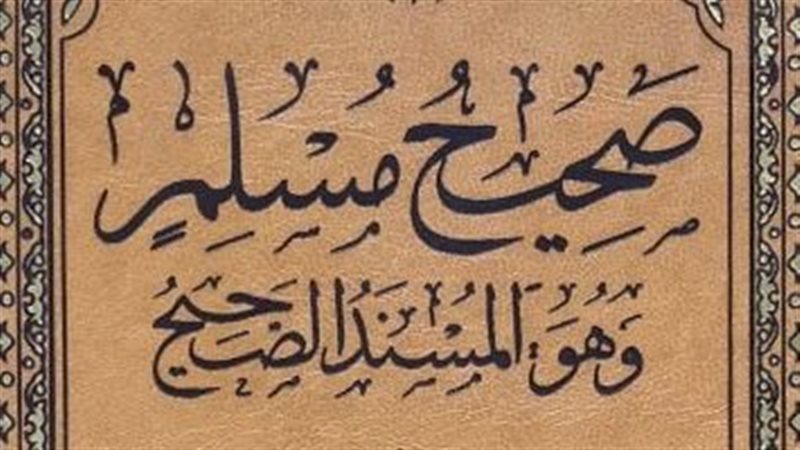 صَحِيحُ مُسْلِمٍ
وَهُوَ: المُسْنَدُ الصَّحِيحُ